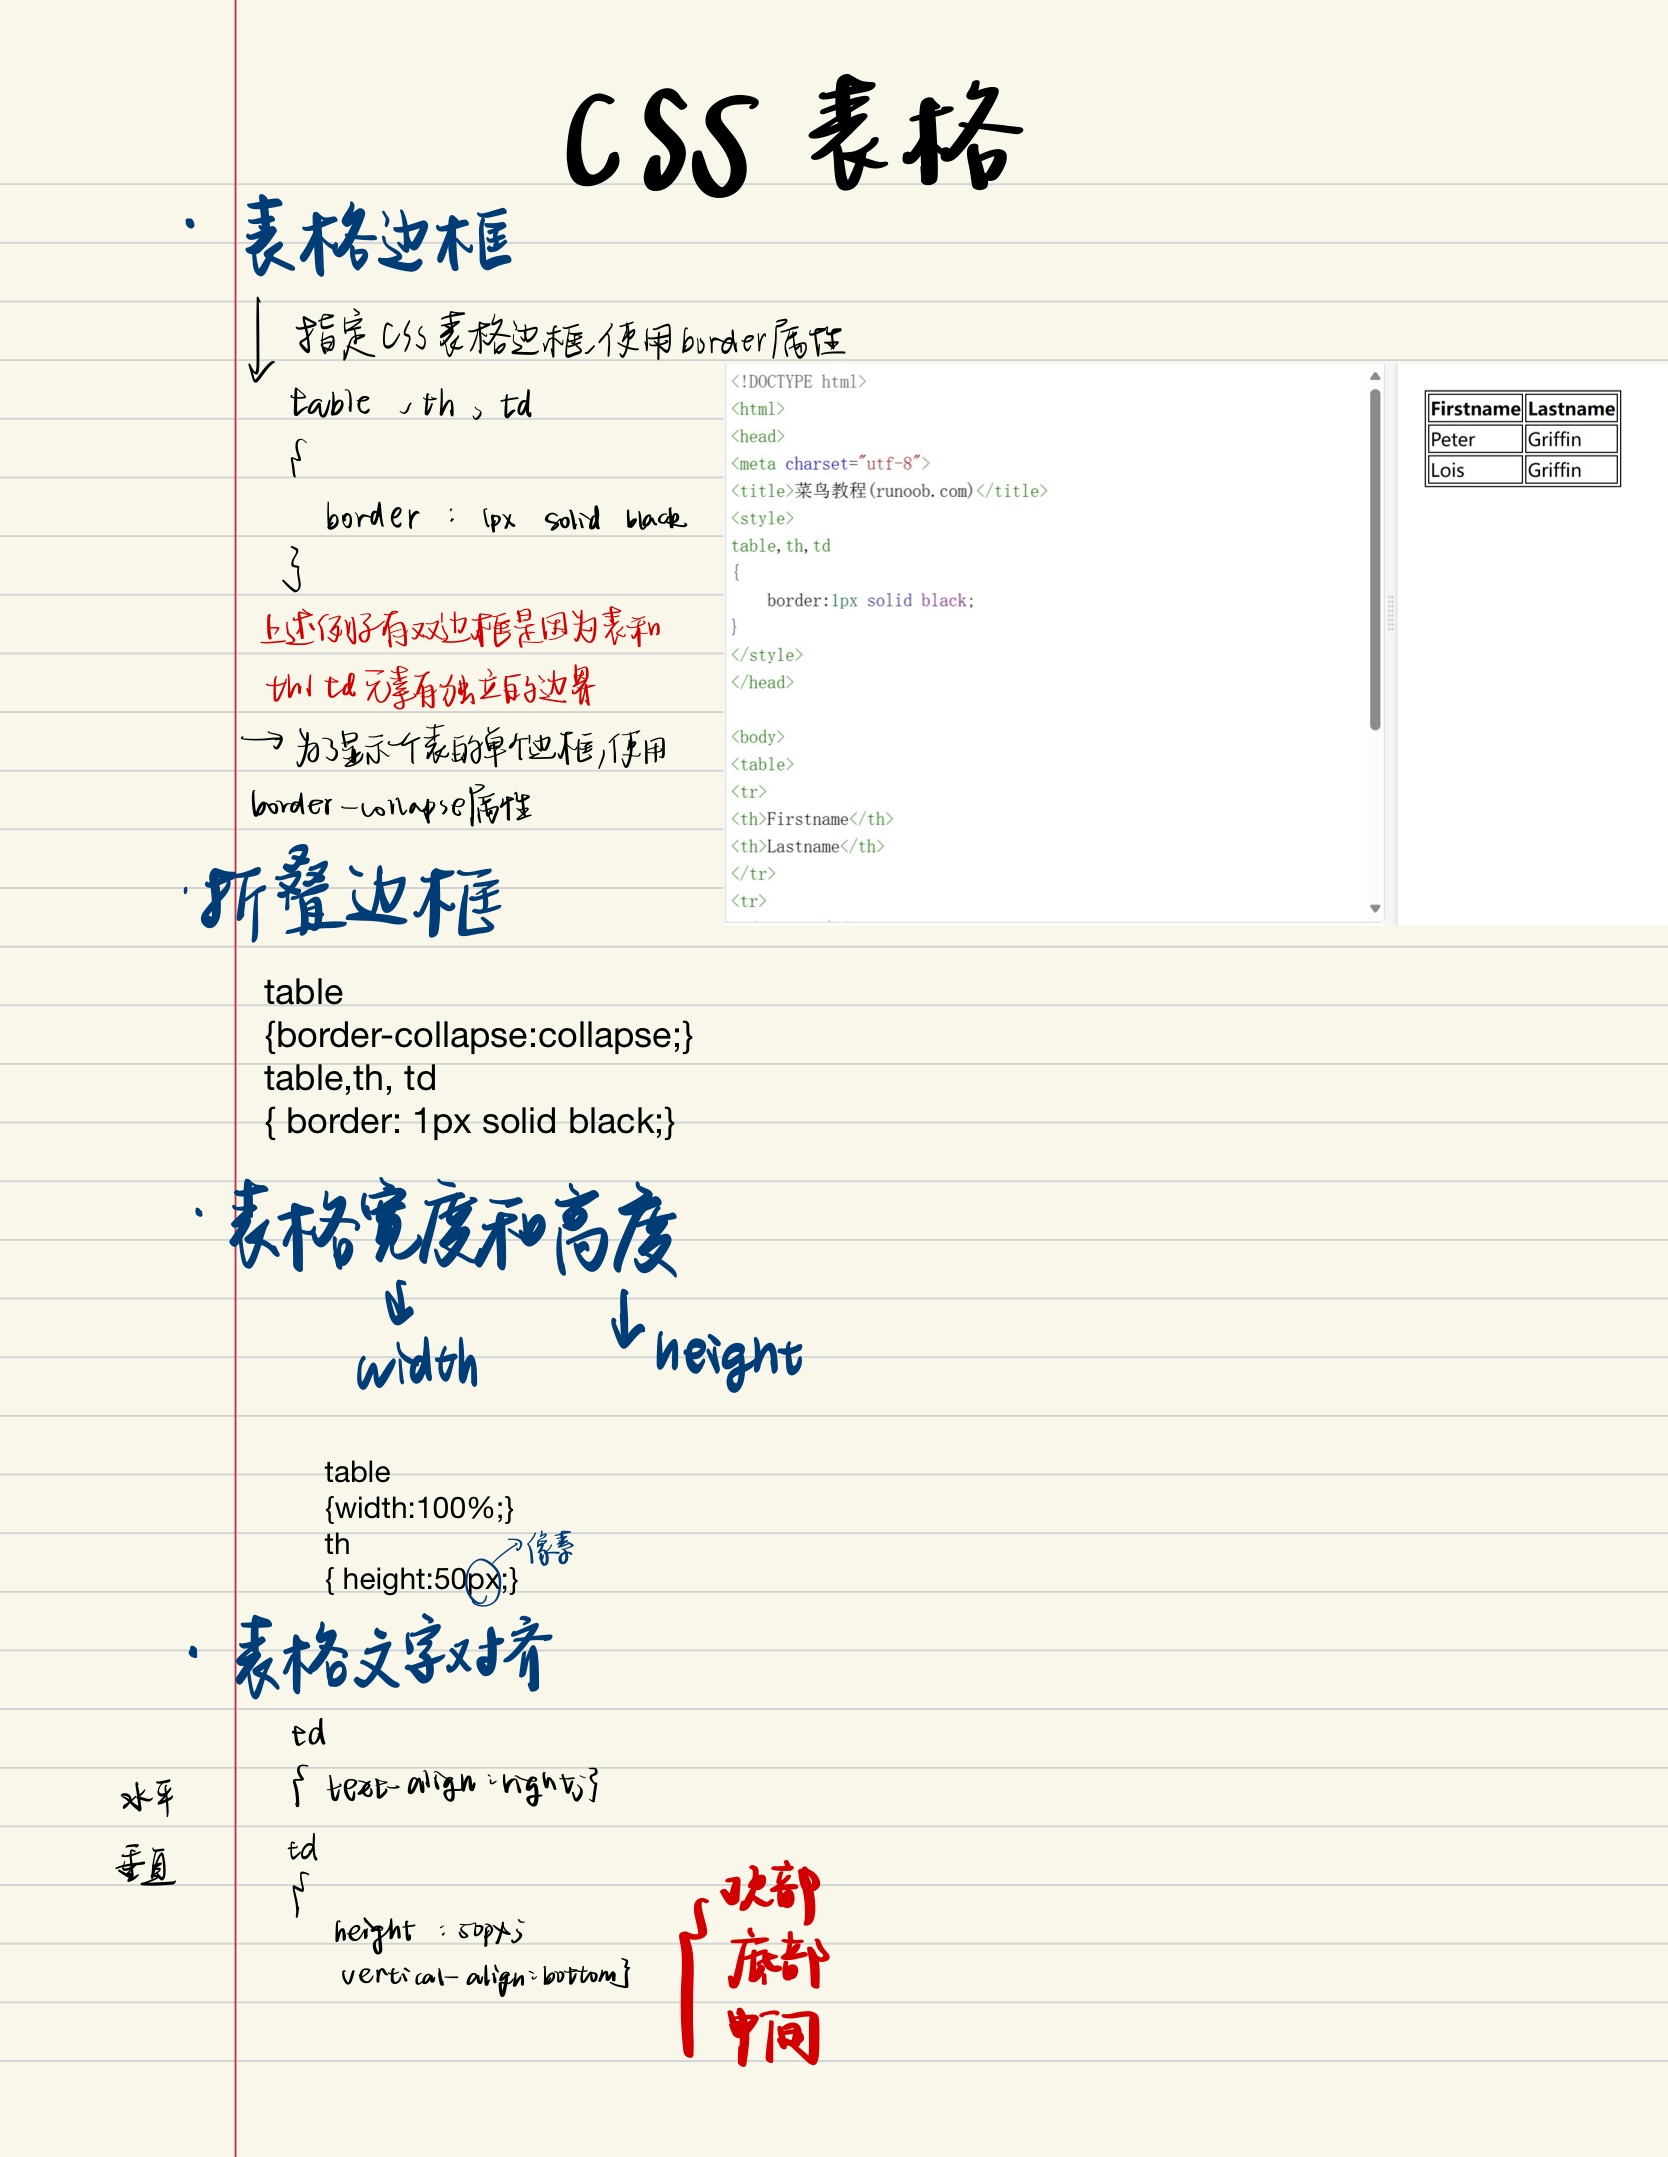 CSS 表格
· 表格边框
指定CSS表格边框,使用border属性
table , th , td
{
border : 1px solid black
}
上述例子有双边框是因为表和
th/td元素有独立的边界
→ 为了显示一个表的单个边框,使用
border-collapse属性
<!DOCTYPE html>
<html>
<head>
<meta charset="utf-8">
<title>菜鸟教程(runoob.com)</title>
<style>
table,th,td
{
border:1px solid black;
}
</style>
</head>
<body>
<table>
<tr>
<th>Firstname</th>
<th>Lastname</th>
</tr>
<tr>
Firstname Lastname
Peter Griffin
Lois Griffin
· 折叠边框
table
{border-collapse:collapse;}
table,th, td
{ border: 1px solid black;}
· 表格宽度和高度
width
height
table
{width:100%;}
th
→像素
{ height:50px;}
· 表格文字对齐
td
水平 { text-align:right;}
td
垂直 {
height : 50px;
vertical-align:bottom}
部
底部
中间